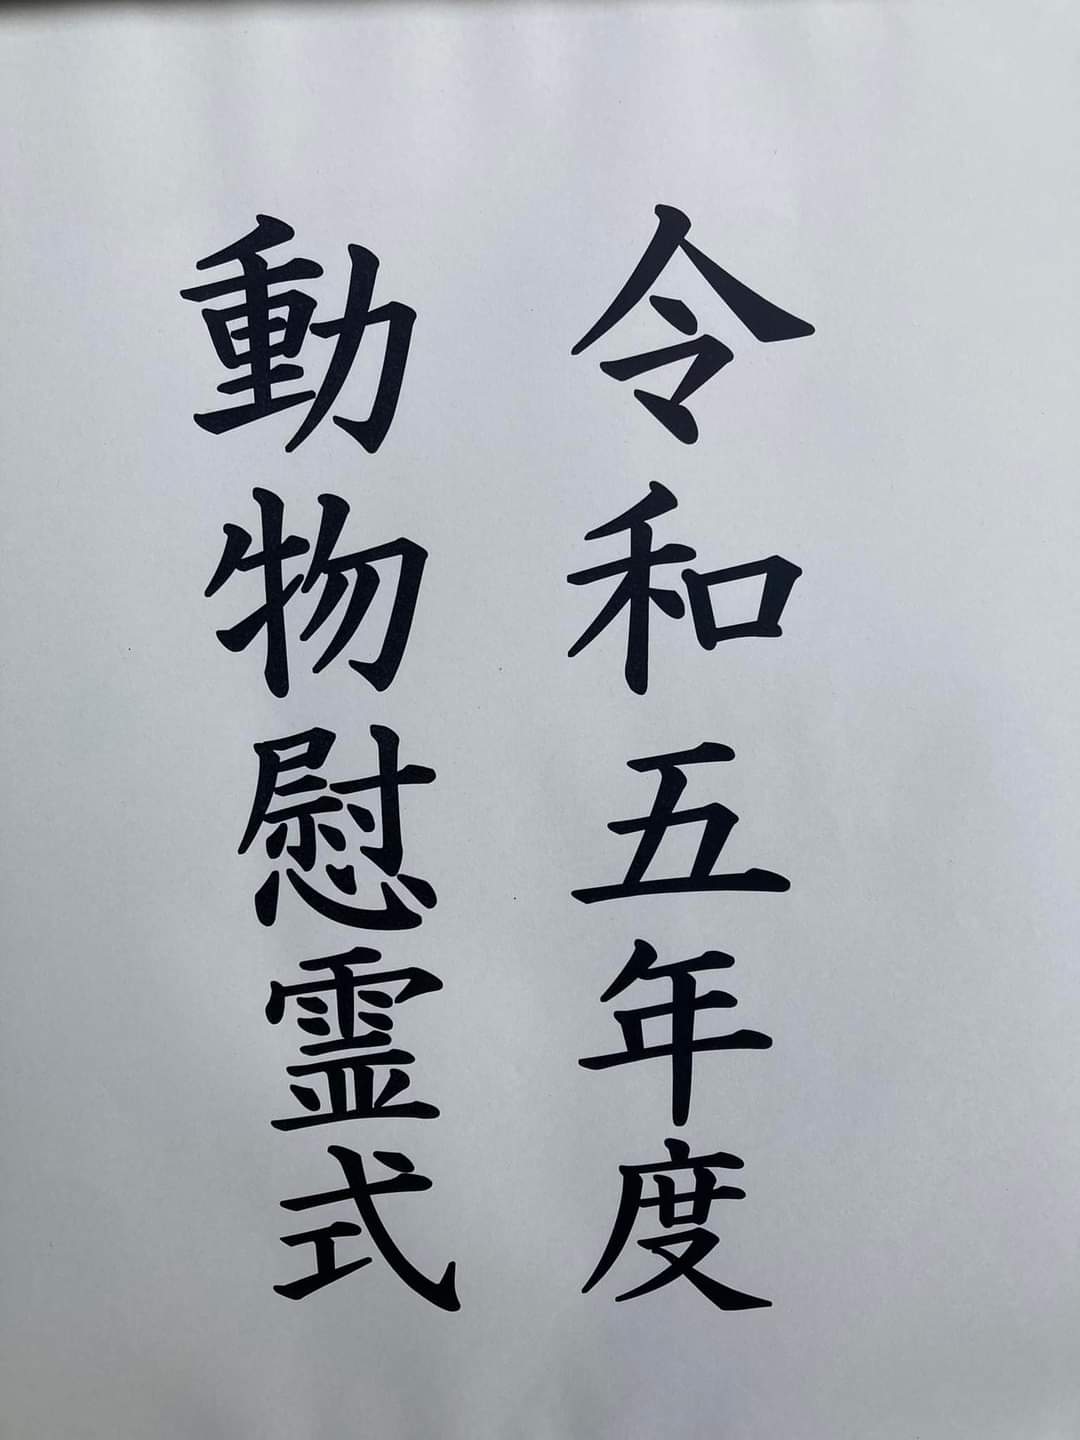 令和五年度
動物慰霊式